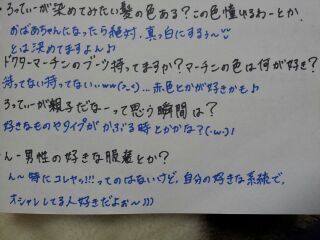 ろってぃーが染めてみたい髪の色ある？この色憧れるわーとか。
おばあちゃんになったら絶対、真っ白にするぅ〜
とは決めてますよん♪
ドクターマーチンのブーツ持ってますか？マーチンの色は何が好き？
持ってない持ってないww(>_<)…赤色とかが好きかも♪
ろってぃーが親子だなーって思う瞬間は？
好きなものやタイプがかぶる時とかかな？(・ω・)!
んー男性の好きな服着とか？
ん〜特にコレヤッ!!!ってのはないけど、自分の好きな系統で、
オシャレしてる人好きだよぉ〜)))